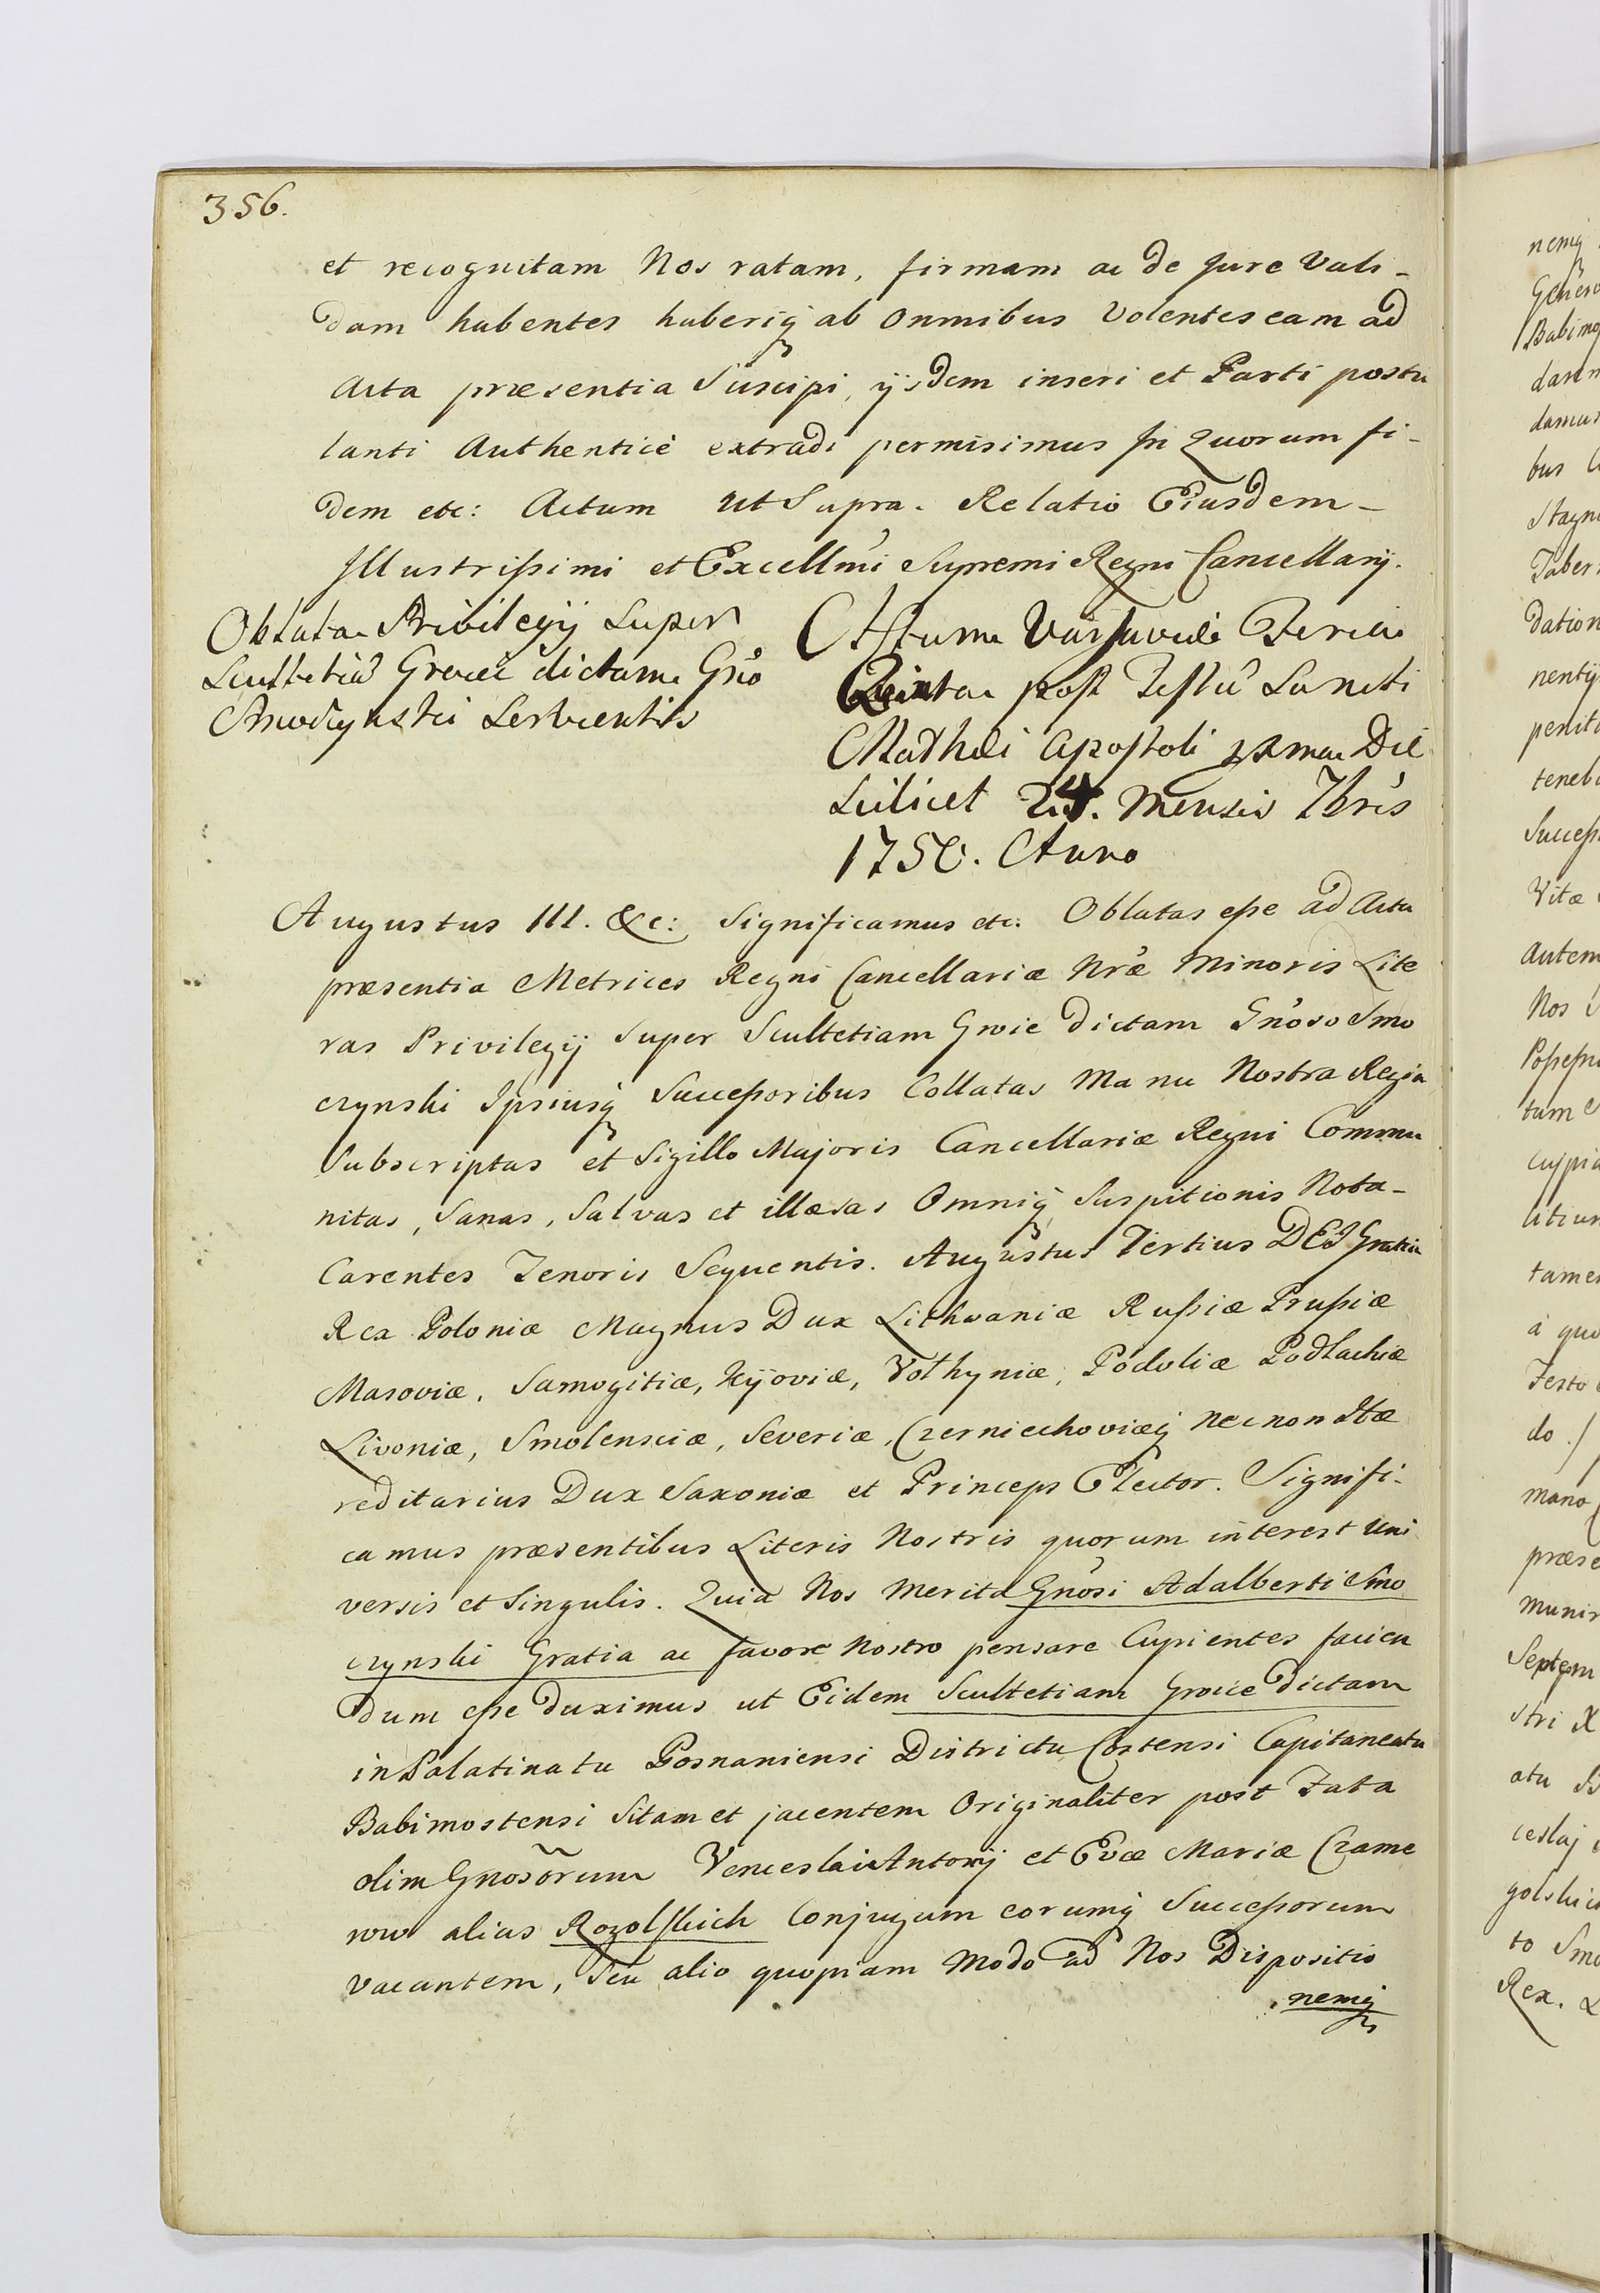 356.
et recognitam Nos ratam, firmam ac de Jure Vali-
dam habentes haberiq ab omnibus Volentes eam ad
Acta præsentia Suscipi, ijsdem inseri et Parti postu
lanti Authenticè extradi permisimus In Quorum fi-
dem etc: Actum ut Supra. Relatio Eiusdem-
Illustrissimi et Excellmi Supremi Regni Cancellarij.
Oblata Privilegij Super
Scultetia dictam Gño
Servientis
Actum Varsaviæ Feria
Quinta post Festu Sancti
Mathæi Apostoli Die
Scilicet 24. Mensis 7bris
1750. Anno
Augustus III. &c: Significamus etc. Oblatas esse ad Acta
præsentia Metrices Regni Cancellariæ Nræ Minoris Lite
ras Privilegij Super Scultetiam dictam Gnoso Smo
czynski Ipsiusq Successoribus Collatas Manu Nostra Regia
Subscriptas et Sigillo Majoris Cancellariæ Regni Commu
nitas, Sanas, Salvas et illæsas Omniq Suspitionis Nota-
Carentes Tenoris Sequentis. Augustus Tertius DEI Gratia
Rex Poloniæ Magnus Dux Lithwaniæ Russiæ Prussiæ
Masoviæ, Samogitiæ, Kijoviæ, Volhyniæ, Podoliæ Podlachiæ
Livoniæ, Smolensciæ, Severiæ, Czerniechoviæq necnon Hæ
reditarius Dux Saxoniæ et Princeps Elector. Signifi-
camus præsentibus Literis Nostris quorum interest Uni
versis et Singulis. Quia Nos Merita Gnosi Adalberti Smo
czynski Gratia ac favore Nostro pensare Cupientes facien
dum esse duximus ut Eidem Scultetiam dictam
in Palatinatu Posnaniensi Districtu Costensi Capitaneatu
Babimostensi Sitam et jacentem Originaliter post Fata
olim Gnosorum Venceslai Antonij et Evæ Mariæ Crame
row alias Conjugum eorumq Successorum
vacantem, Seu alio quopiam Modo ad Nos Dispositio
nemq